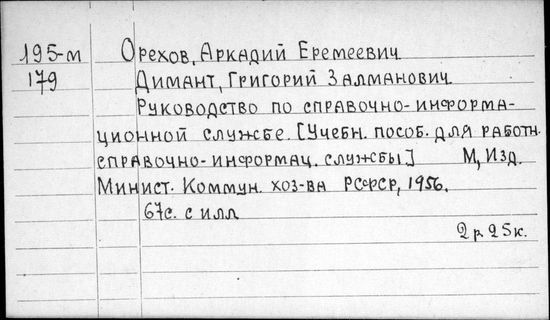 195-м Орехов, Аркадий Еремеевич
179 Димант, Григорий Залманович
Руководство по справочно-информа-
ционной службе. [Учебн. пособ. для работн.
справочно-информац. службы] М, Изд.
Минист. Коммун. хоз-ва РСФСР, 1956.
67с. с илл
2 р. 25 к.